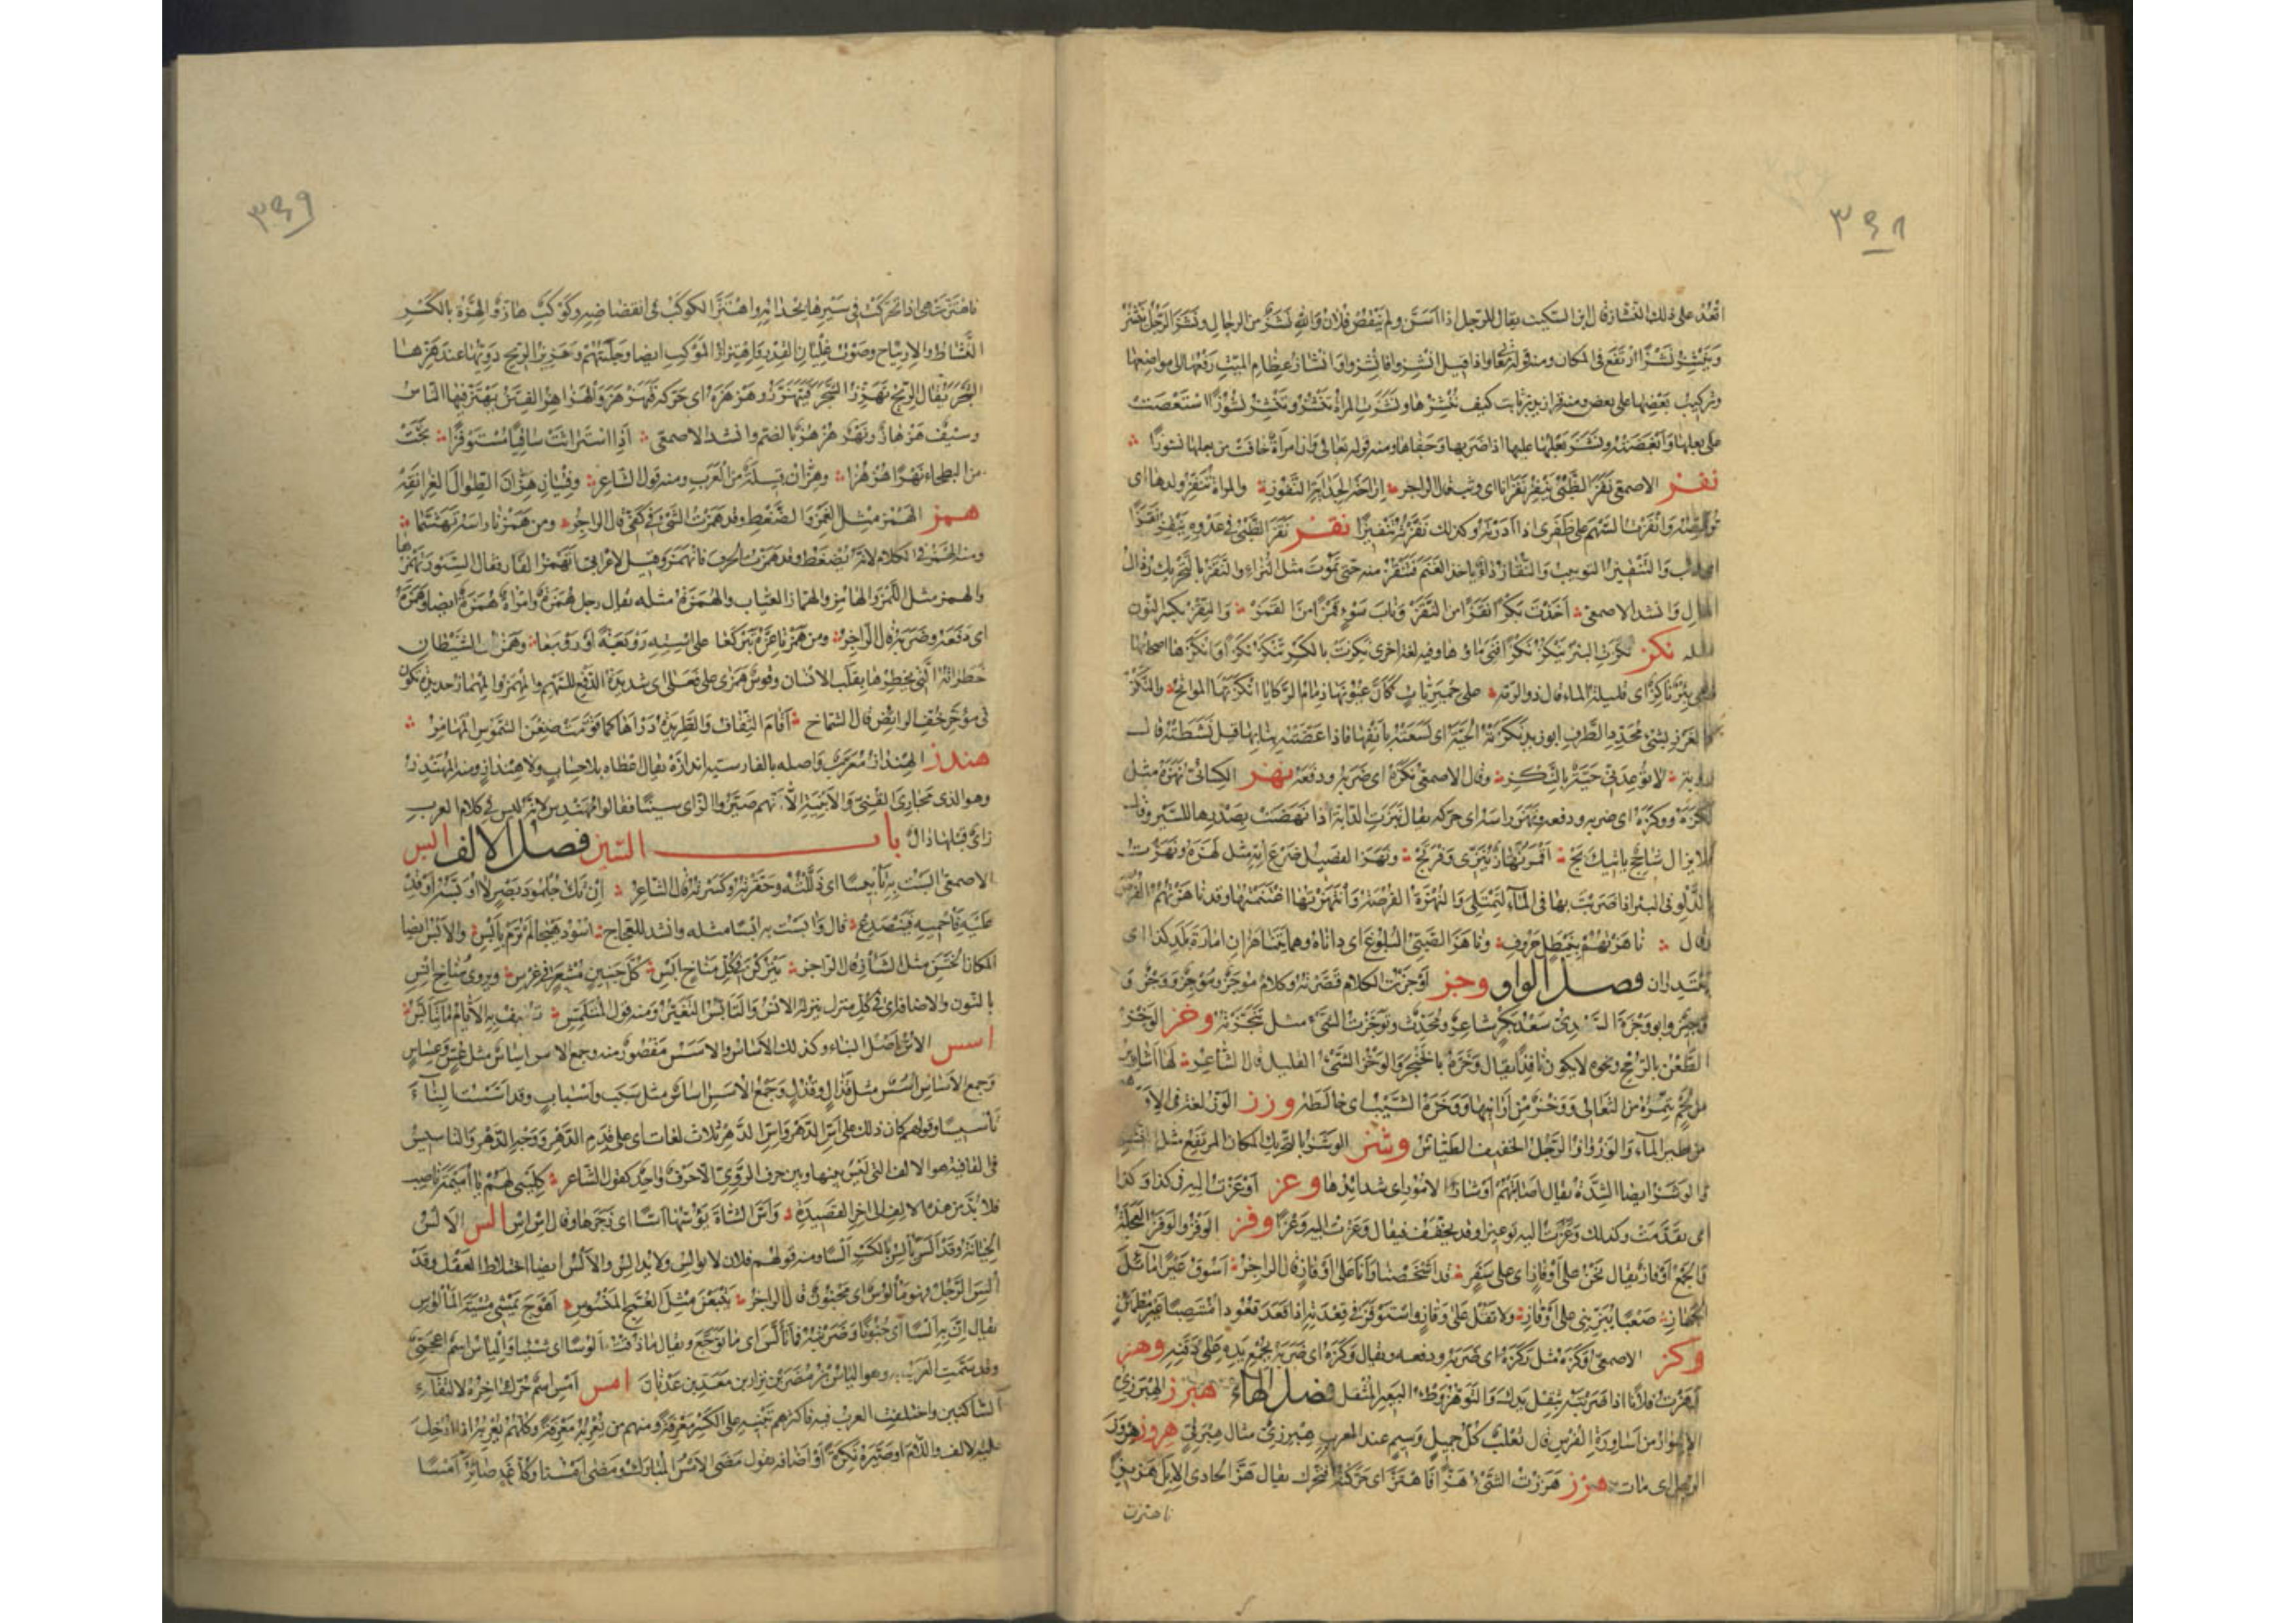 ٣٤٨
اقْعُدْ على ذلك النشاز قال ابن السكيت يقال للرجل اذا اسن ولم ينقص فلان والله نشز من الرجال ونشز الرجل ينشز
وينشز نشزا ارتفع في المكان ومنه قوله تعالى واذا قيل انشزوا فانشزوا وانشاز عظام الميت رفعها الى مواضعها
وتركيب بعضها على بعض ومنه قرا زيد بن ثابت كيف ننشزها ونشزت المراة تنشز وتنشز نشوزا استعصت
على بعلها وابغضته ونشز بعلها عليها اذا ضربها وجفاها ومنه قوله تعالى وان امراة خافت من بعلها نشوزا
نفز الاصمعي نفز الظبي ينفز نفزانا اى وثب قال الراجز اراحة الجداية النفوز والمراة تنفز ولدها اى
ترقصه وانفزت السهم على ظفرى اذا ادرته وكذلك نفزته تنفيزا نقز نقز الظبي في عدوه ينقز نقزا
اى وثب والتنقيز التوثيب والنقاز داء ياخذ الغنم فتنقز منه حتى تموت مثل النزاء والنقز بالتحريك رذال
المال وانشد الاصمعي اخذت بكرا نقزا من النقز وناب سوء قمزا من القمز والنقز بكسر النون
مثله نكز نكزت البئر تنكز نكزا فنى ماؤها وفيه لغة اخرى نكزت بالكسر تنكز نكزا وانكزها اصحابها
وهي بئر ناكز اى قليلة الماء قال ذو الرمة على حميريات كان عيونها ذمام الركايا انكزتها المواتح والنكز
الغرز بشئ محدد الطرف ابو زيد نكزته الحية اى لسعته بانفها فاذا عضته بنابها قيل نشطته قال
رؤبة لا توعدني حية بالنكز وقال الاصمعي نكزه اى ضربه ودفعه نهز الكسائي نهزه مثل
نكزه ووكزه اى ضربه ودفعه ونهز راسه اى حركه يقال نهزت الدابة اذا نهضت بصدرها للسير وقال
فلا يزال شاحج ياتيك بج اقمر نهاز ينزى وفرتج ونهز الفصيل ضرع امه مثل لهزه ونهزت
بالدلو في البئر اذا ضربت بها في الماء لتمتلئ والنهزة الفرصة وانتهزتها اغتنمتها وقد ناهزتهم الفرص
وقال ناهزتهم بنيطل جروف وناهز الصبي البلوغ اى داناه وهما يتناهزان امارة بلد كذا اى
يبتدران فصل الواو وجز اوجزت الكلام قصرته وكلام موجز وموجز ووجز و
وجيز وابو وجزة السعدى سعد بكر شاعر ومحدث وتوجزت الشئ مثل تنجزته وخز الوخز
الطعن بالرمح ونحوه لا يكون نافذا يقال وخزه بالخنجر والوخز الشئ القليل قال الشاعر لها اشارير
من لحم تتمره من الثعالى ووخز من ارانيها ووخزه الشيب اى خالطه وزز الوز لغة في الاوز
من طير الماء والوزواز الرجل الخفيف الطياش وشز الوشز بالتحريك المكان المرتفع مثل النشز
والوشز ايضا الشدة يقال اصابتهم اوشاز الامور اى شدائدها وعز اوعزت اليه في كذا وكذا
اى تقدمت وكذلك وعزت اليه توعيزا وقد يخفف فيقال وعزت اليه وعزا وفز الوفز والوفز العجلة
والجمع اوفاز يقال نحن على اوفاز اى على سفر قد اشخصنا وانا على اوفاز قال الراجز اسوق عيرا مائل
الجهاز صعبا ينزيني على اوفاز ولا تقل على وفاز واستوفز في قعدته اذا قعد قعودا منتصبا غير مطمئن
وكز الاصمعي وكزه مثل نكزه اى ضربه ودفعه ويقال وكزه اى ضربه بجمع يده على ذقنه وهز
وهزت فلانا اذا ضربته بثقل يدك والتوهز وطء البعير المثقل فصل الهاء هبرز الهبرزى
الاسوار من اساورة الفرس قال ثعلب كل جميل وسيم عند العرب هبرزى مثال هبرقى هروز هروز
الرجل اى مات هزز هززت الشئ هزا فاهتز اى حركته فتحرك يقال هز الحادى الابل هزيزا
فاهتزت
٣٤٩
فاهتزت هى اذا تحركت في سيرها بحدائه واهتز الكوكب في انقضاضه وكوكب هاز والهزة بالكسر
النشاط والارتياح وصوت غليان القدر واهتزاز الموكب ايضا وجلبتهم وهزيز الريح دويها عند هزها
الشجر يقال الريح تهزز الشجر فيتهزز وهزهزه اى حركه فتهزهز والهزاهز الفتن يهتز فيها الناس
وسيف هزهاز ونهر هزهز بالضم وانشد الاصمعي اذا استراثت ساقيا مستوفزا بجت
من البطحاء نهرا هزهزا وهزان قبيلة من العرب ومنه قول الشاعر وفتيان هزان الطوال الغرانقه
همز الهمز مثل الغمز والضغط وقد همزت الشئ في كفى قال الراجز ومن همزنا راسه تهشما
ومنه الهمز في الكلام لانه يضغط وقد همزت الحرف فانهمز وقيل لاعرابي اتهمز الفار فقال السنور تهمزها
والهمز مثل اللمز والهامز والهماز العياب والهمزة مثله يقال رجل همزة وامراة همزة ايضا وهمزه
اى دفعه وضربه قال الراجز ومن همزنا عزه تبركعا على استه زوبعة او زوبعا وهمزات الشيطان
خطراته التي يخطرها بقلب الانسان وقوس همزى على فعلى اى شديدة الدفع للسهم والمهمز والمهماز حديدة تكون
في مؤخر خف الرائض قال الشماخ اقام الثقاف والطريدة دراها كما قومت ضغن الشموس المهامز
هندز الهنداز معرب واصله بالفارسية اندازه يقال اعطاه بلا حساب ولا هنداز ومنه المهندز
وهو الذى مجارى القنى والابنية الا انهم صيروا الزاى سينا فقالوا مهندس لانه ليس في كلام العرب
زاى قبلها دال باب السين فصل الالف ابس
الاصمعي ابست به تابيسا اى ذللته وحقرته وكسرته قال الشاعر ان تك جلمود بصر لا اوبسه اوقد
عليه فاحميه فينصدع قال وابست به ابسا مثله وانشد للعجاج اسود هيجا لم ترم بابس والابس ايضا
المكان الخشن مثل الشاز قال الراجز يتركن في كل مناخ ابس كل جنين مشعر في غرس ويروى مناخ انس
بالنون والاضافة اى في كل منزل ينزله الانس والتابس التغير ومنه قول المتلمس تطيف به الايام ما يتابس
اسس الاس اصل البناء وكذلك الاساس والاسس مقصور منه وجمع الاس اساس مثل عس وعساس
وجمع الاساس اسس مثل قذال وقذل وجمع الاسس اساس مثل سبب واسباب وقد اسست البناء
تاسيسا وقولهم كان ذلك على اس الدهر واس الدهر ثلاث لغات اى على قدم الدهر ووجه الدهر والتاسيس
في القافية هو الالف التي ليس بينها وبين حرف الروى الا حرف واحد كقول الشاعر كلينى لهم يا اميمة ناصب
فلا بد من هذه الالف الى اخر القصيدة واس الشاة يؤسها اسا اى زجرها وقال اس اس الس الالس
الخيانة وقد الس يالس بالكسر السا ومنه قولهم فلان لا يوالس ولا يدالس والالس ايضا اختلاط العقل وقد
الس الرجل فهو مالوس اى مجنون قال الراجز يتبعن مثل العمج المنسوس اهوج يمشى مشية المالوس
يقال ان به السا اى جنونا وضربه فما تالس اى ما توجع ويقال ما ذقت الوسا اى شيئا والياس اسم اعجمى
وقد سمت العرب به وهو الياس بن مضر بن نزار بن معد بن عدنان امس امس اسم حرك اخره لالتقاء
الساكنين واختلفت العرب فيه فاكثرهم يبنيه على الكسر معرفة ومنهم من يعربه معرفة وكلهم يعربه اذا ادخل
عليه الالف واللام او صيره نكرة او اضافه يقول مضى الامس المبارك ومضى امسنا وكل غد صائر امسا